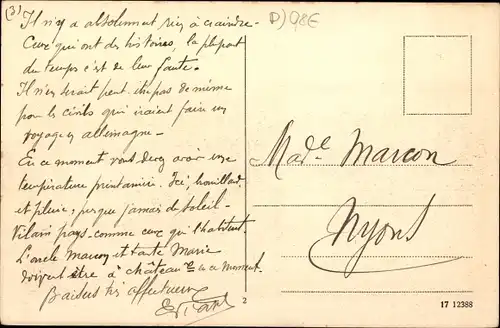 (3)
D) 98E
Il n'y a absolument rien à craindre -
Ceux qui ont des histoires, la plupart
du temps c'est de leur faute.
Il n'en serait peut-être pas de même
pour les civils qui iraient faire un
voyage en Allemagne -
En ce moment vous devez avoir une
température printanière. Ici, brouillard
et pluie, presque jamais de soleil -
Vilain pays - comme ceux qui l'habitent.
L'oncle Marcon et tante Marie
doivent être à Château ce moment.
Baisers très affectueux
Mad.e Marcon
Nyons
2
17 12388